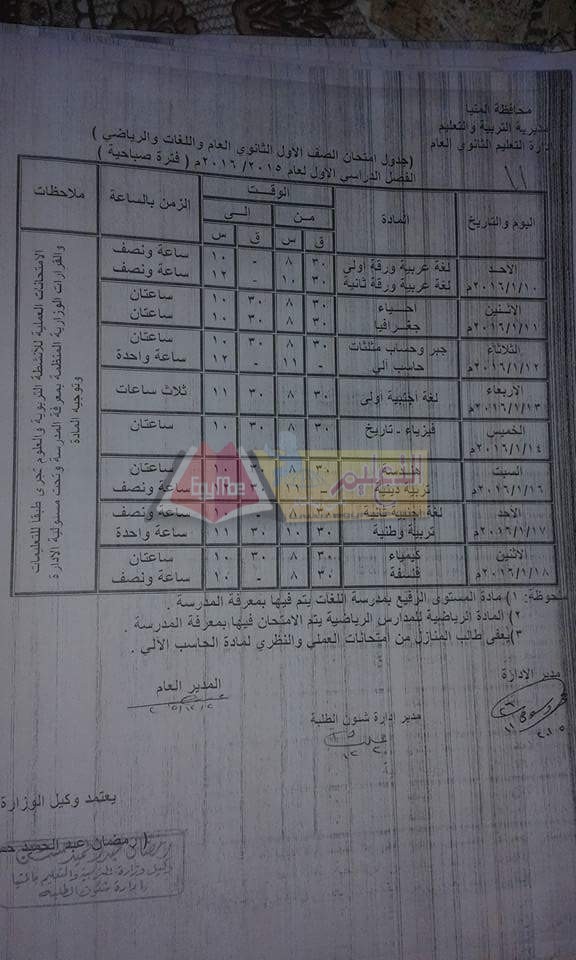 محافظة المنيا
مديرية التربية والتعليم
إدارة التعليم الثانوي العام
(جدول امتحان الصف الاول الثانوي العام واللغات والرياضي)
الفصل الدراسي الأول لعام ٢٠١٥/ ٢٠١٦م ( فترة صباحية )
اليوم والتاريخ المادة الوقت الزمن بالساعة ملاحظات
من الى
ق س ق س
الاحد لغة عربية ورقة أولى ٣٠ ٨ - ١٠ ساعة ونصف
٢٠١٦/١/١٠م لغة عربية ورقة ثانية ٣٠ ١٠ - ١٢ ساعة ونصف
الاثنين أحياء ٣٠ ٨ ٣٠ ١٠ ساعتان
٢٠١٦/١/١١م جغرافيا ٣٠ ٨ ٣٠ ١٠ ساعتان
الثلاثاء جبر وحساب مثلثات ٣٠ ٨ ٣٠ ١٠ ساعتان
٢٠١٦/١/١٢م حاسب آلي - ١١ - ١٢ ساعة واحدة
الأربعاء لغة اجنبية أولى ٣٠ ٨ ٣٠ ١١ ثلاث ساعات
٢٠١٦/١/١٣م
الخميس فيزياء - تاريخ ٣٠ ٨ ٣٠ ١٠ ساعتان
٢٠١٦/١/١٤م
السبت هندسة ٣٠ ٨ ساعتان
٢٠١٦/١/١٦م تربية دينية ساعة ونصف
الاحد لغة أجنبية ثانية ٣٠ ٨ ساعة ونصف
٢٠١٦/١/١٧م تربية وطنية ٣٠ ١٠ ٣٠ ١١ ساعة واحدة
الاثنين كيمياء ٣٠ ٨ ٣٠ ١٠ ساعتان
٢٠١٦/١/١٨م فلسفة ٣٠ ٨ - ١٠ ساعة ونصف
الامتحانات العملية للأنشطة التربوية والعلوم تجرى طبقا للتعليمات
والقرارات الوزارية المنظمة بمعرفة المدرسة وتحت مسئولية الادارة
وتوجيه المادة
التعليم
EgyMoe
ملحوظة: ١) مادة المستوى الرفيع بمدرسة اللغات يتم فيها بمعرفة المدرسة .
٢) المادة الرياضية للمدارس الرياضية يتم الامتحان فيها بمعرفة المدرسة .
٣)يعفى طالب المنازل من امتحانات العملي والنظري لمادة الحاسب الآلي .
مدير الإدارة
مدير إدارة شئون الطلبة
المدير العام
يعتمد وكيل الوزارة
( رمضان عبد الحميد
وكيل وزارة التربية والتعليم بالمنيا
إدارة شئون الطلبة